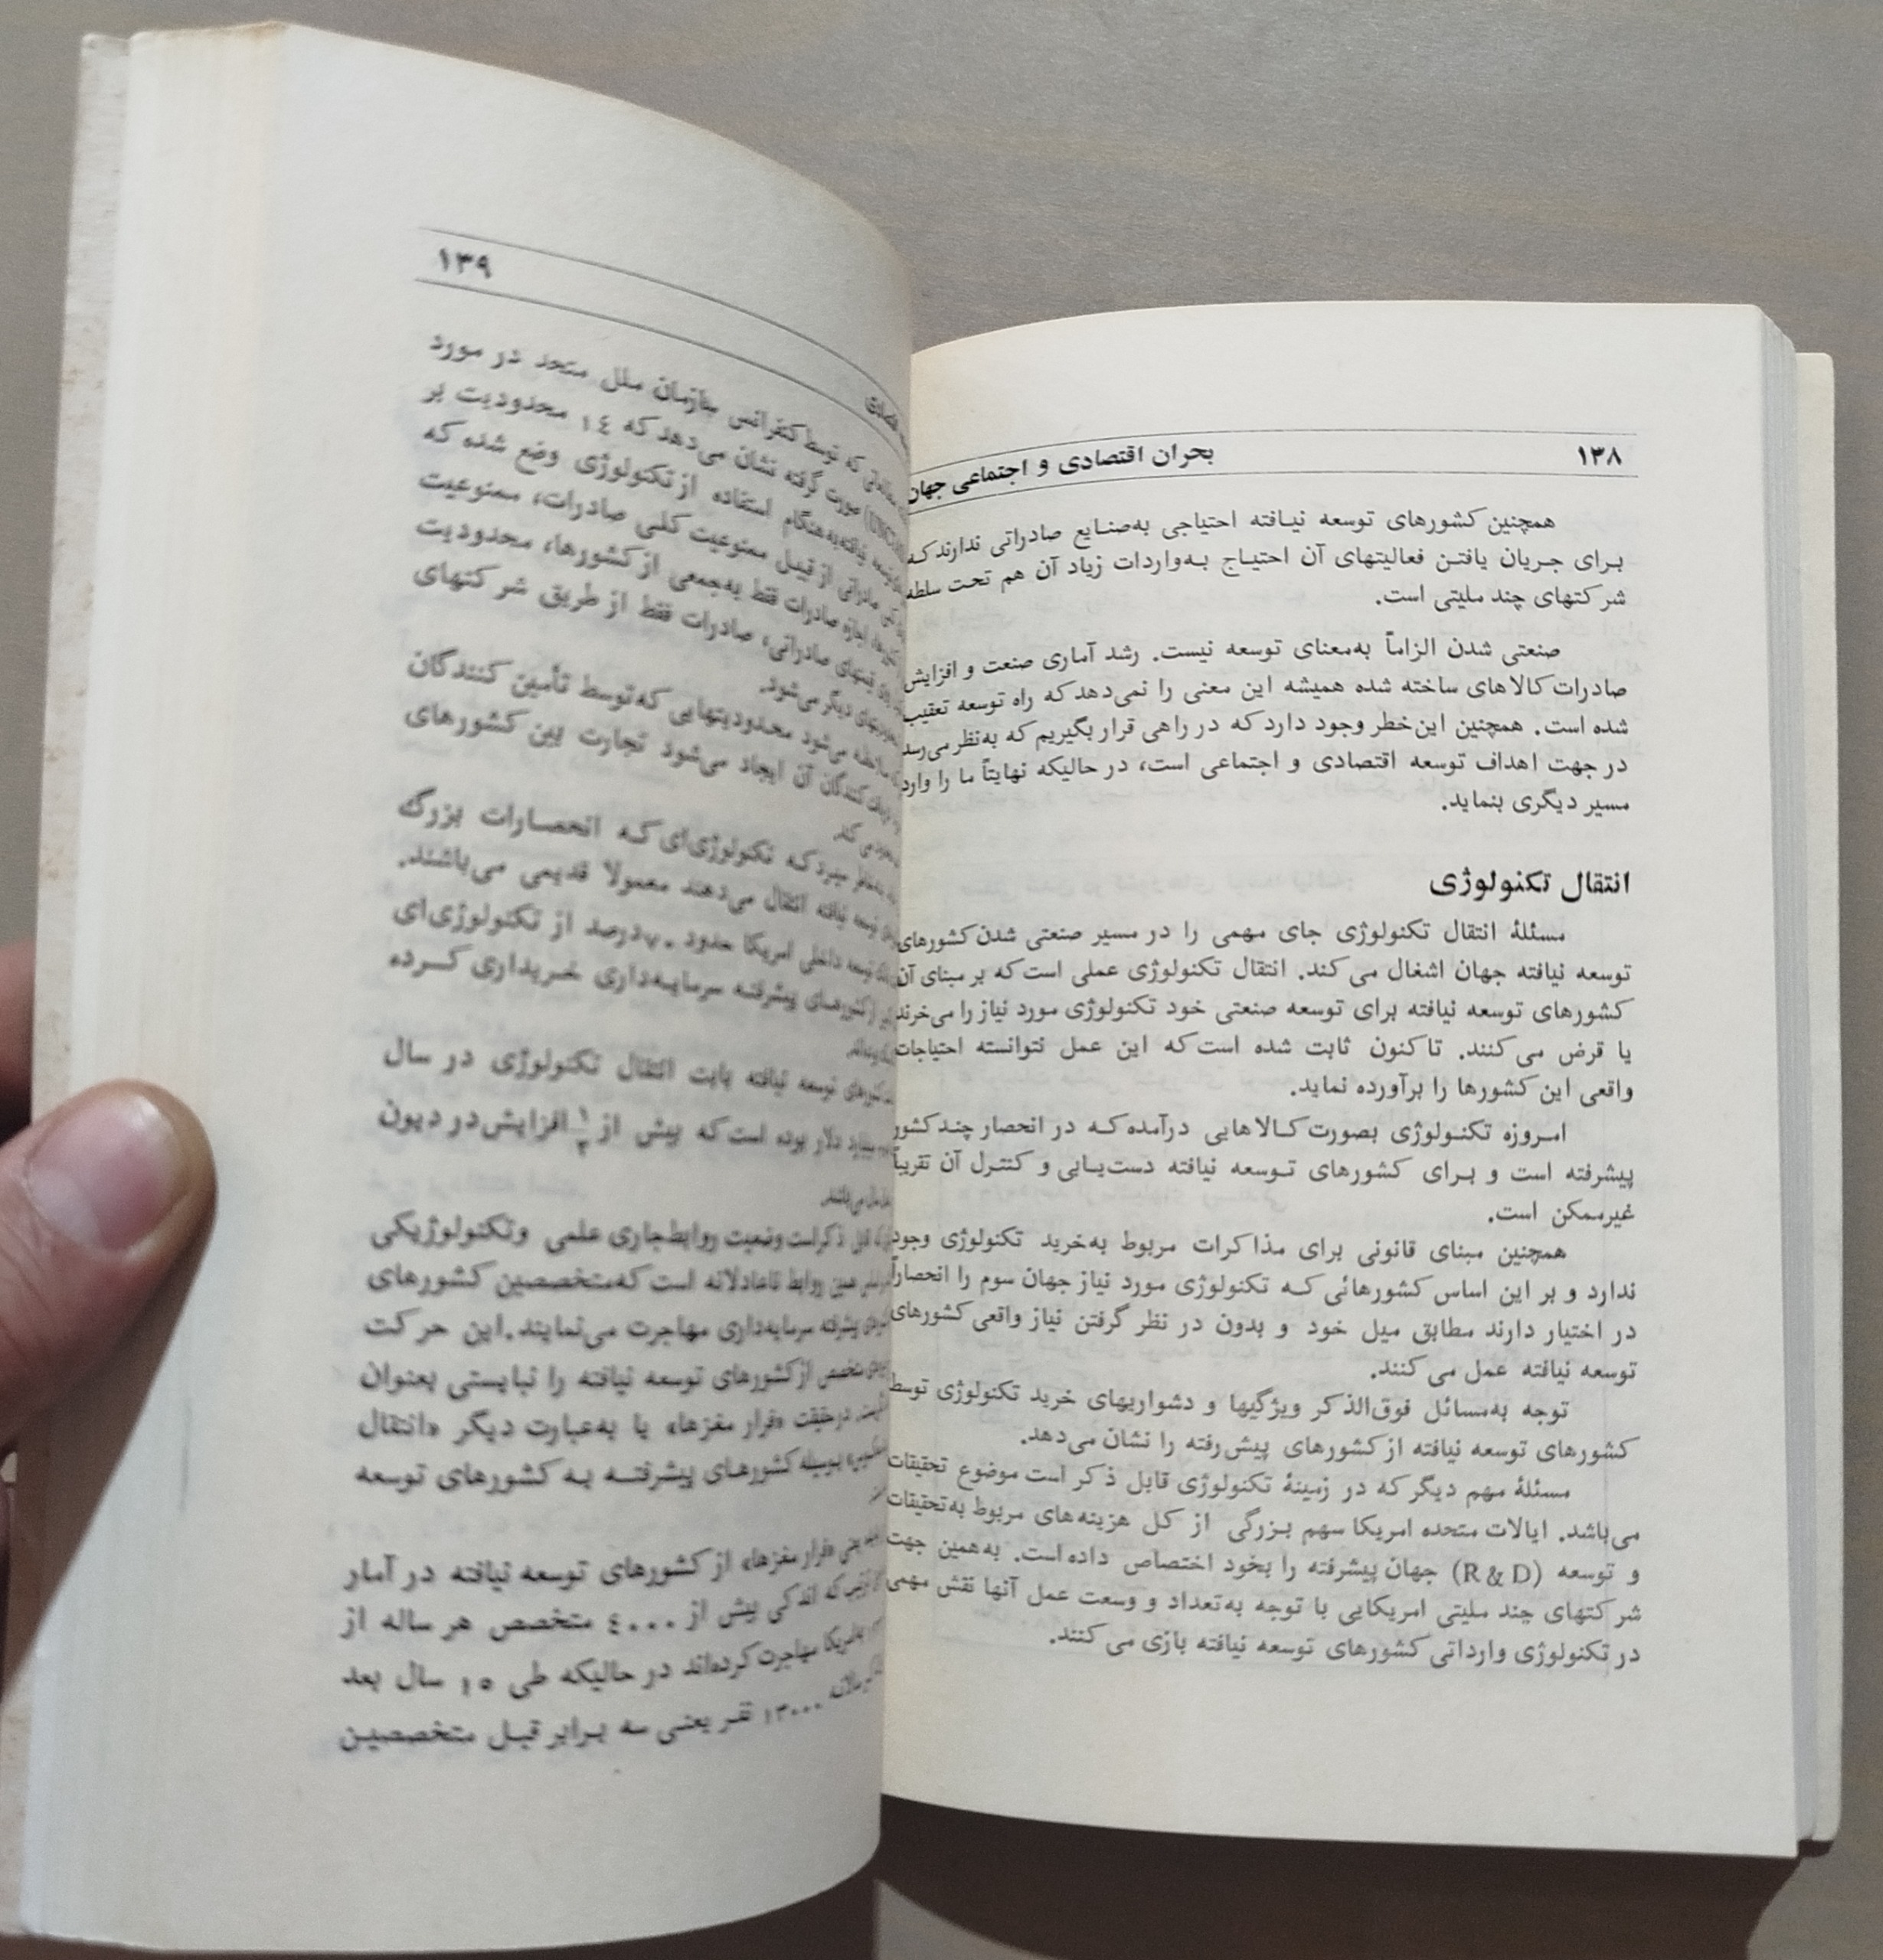 ۱۳۸
بحران اقتصادی و اجتماعی جهان
همچنین کشورهای توسعه نیافته احتیاجی به‌صنایع صادراتی ندارند که
برای جریان یافتن فعالیتهای آن احتیاج به‌واردات زیاد آن هم تحت سلطه
شرکتهای چند ملیتی است.
صنعتی شدن الزاماً به‌معنای توسعه نیست. رشد آماری صنعت و افزایش
صادرات کالاهای ساخته شده همیشه این معنی را نمی‌دهد که راه توسعه تعقیب
شده است. همچنین این خطر وجود دارد که در راهی قرار بگیریم که به‌نظر می‌رسد
در جهت اهداف توسعه اقتصادی و اجتماعی است، در حالیکه نهایتاً ما را وارد
مسیر دیگری بنماید.
انتقال تکنولوژی
مسئلهٔ انتقال تکنولوژی جای مهمی را در مسیر صنعتی شدن کشورهای
توسعه نیافته جهان اشغال می‌کند. انتقال تکنولوژی عملی است که بر مبنای آن
کشورهای توسعه نیافته برای توسعه صنعتی خود تکنولوژی مورد نیاز را می‌خرند
یا قرض می‌کنند. تاکنون ثابت شده است که این عمل نتوانسته احتیاجات
واقعی این کشورها را برآورده نماید.
امروزه تکنولوژی بصورت کالاهایی درآمده که در انحصار چند کشور
پیشرفته است و برای کشورهای توسعه نیافته دست‌یابی و کنترل آن تقریباً
غیرممکن است.
همچنین مبنای قانونی برای مذاکرات مربوط به‌خرید تکنولوژی وجود
ندارد و بر این اساس کشورهائی که تکنولوژی مورد نیاز جهان سوم را انحصاراً
در اختیار دارند مطابق میل خود و بدون در نظر گرفتن نیاز واقعی کشورهای
توسعه نیافته عمل می‌کنند.
توجه به‌مسائل فوق‌الذکر ویژگیها و دشواریهای خرید تکنولوژی توسط
کشورهای توسعه نیافته از کشورهای پیش‌رفته را نشان می‌دهد.
مسئلهٔ مهم دیگر که در زمینهٔ تکنولوژی قابل ذکر است موضوع تحقیقات
می‌باشد. ایالات متحده امریکا سهم بزرگی از کل هزینه‌های مربوط به‌تحقیقات
و توسعه (R & D) جهان پیشرفته را بخود اختصاص داده است. به‌همین جهت
شرکتهای چند ملیتی امریکایی با توجه به‌تعداد و وسعت عمل آنها نقش مهمی
در تکنولوژی وارداتی کشورهای توسعه نیافته بازی می‌کنند.
۱۳۹
که توسط کنفرانس سازمان ملل متحد در مورد
صورت گرفته نشان می‌دهد که ۱۴ محدودیت بر
توسعه نیافته به‌هنگام استفاده از تکنولوژی وضع شده که
صادراتی از قبیل ممنوعیت کلی صادرات، ممنوعیت
اجازه صادرات فقط به‌جمعی از کشورها، محدودیت
قیمتهای صادراتی، صادرات فقط از طریق شرکتهای
دیگر می‌شود.
ملاحظه می‌شود محدودیتهایی که توسط تأمین کنندگان
کنندگان آن ایجاد می‌شود تجارت بین کشورهای
می‌کند.
که تکنولوژی‌ای که انحصارات بزرگ
توسعه نیافته انتقال می‌دهند معمولا قدیمی می‌باشند.
توسعه داخلی امریکا حدود ۷۰ درصد از تکنولوژی‌ای
از کشورهای پیشرفته سرمایه‌داری خریداری کرده
کشورهای توسعه نیافته بابت انتقال تکنولوژی در سال
دلار بوده است که بیش از افزایش در دیون
می‌باشد.
قابل ذکر است وضعیت روابط جاری علمی وتکنولوژیکی
همین روابط ناعادلانه است که متخصصین کشورهای
پیشرفته سرمایه‌داری مهاجرت می‌نمایند. این حرکت
متخصص از کشورهای توسعه نیافته را نبایستی بعنوان
در حقیقت «فرار مغزها» یا به‌عبارت دیگر «انتقال
بوسیله کشورهای پیشرفته به کشورهای توسعه
یعنی «فرار مغزها» از کشورهای توسعه نیافته در آمار
که اندکی بیش از ۴۰۰۰ متخصص هر ساله از
به‌امریکا مهاجرت کرده‌اند در حالیکه طی ۱۵ سال بعد
سالانه ۱۳۰۰۰ نفر یعنی سه برابر قبل متخصصین